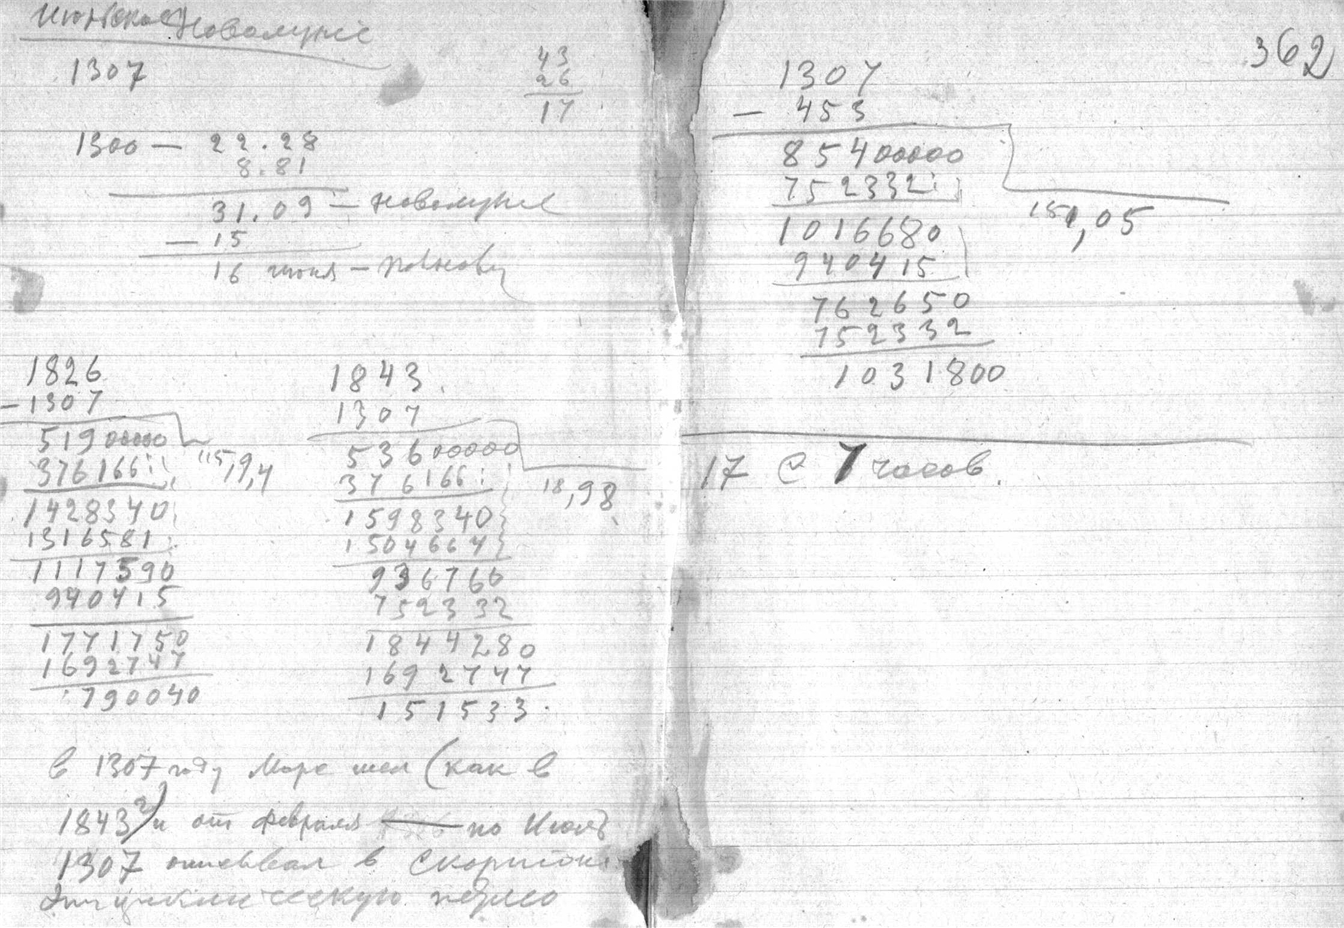 Июньское Новолуние
1307
43
26
17
1300 — 22.28
8.81
31.09 — новолуние
— 15
16 июня — полнолу
1826
— 1307
51900000
376166
1428340
1316581
1117590
940415
1771750
1692747
790040
115,9,4
1843
1307
53600000
376166
1598340
1504664
936760
752332
1844280
1692747
151533
18,98
в 1307 году Марс шел (как в
1843 г) и от февраля — по Июль
1307 описывал в Скорпионе
эпициклическую петлю
362
1307
— 453
85400000
752332
1016680
940415
762650
752332
1031800
151,05
17 с 7 часов.